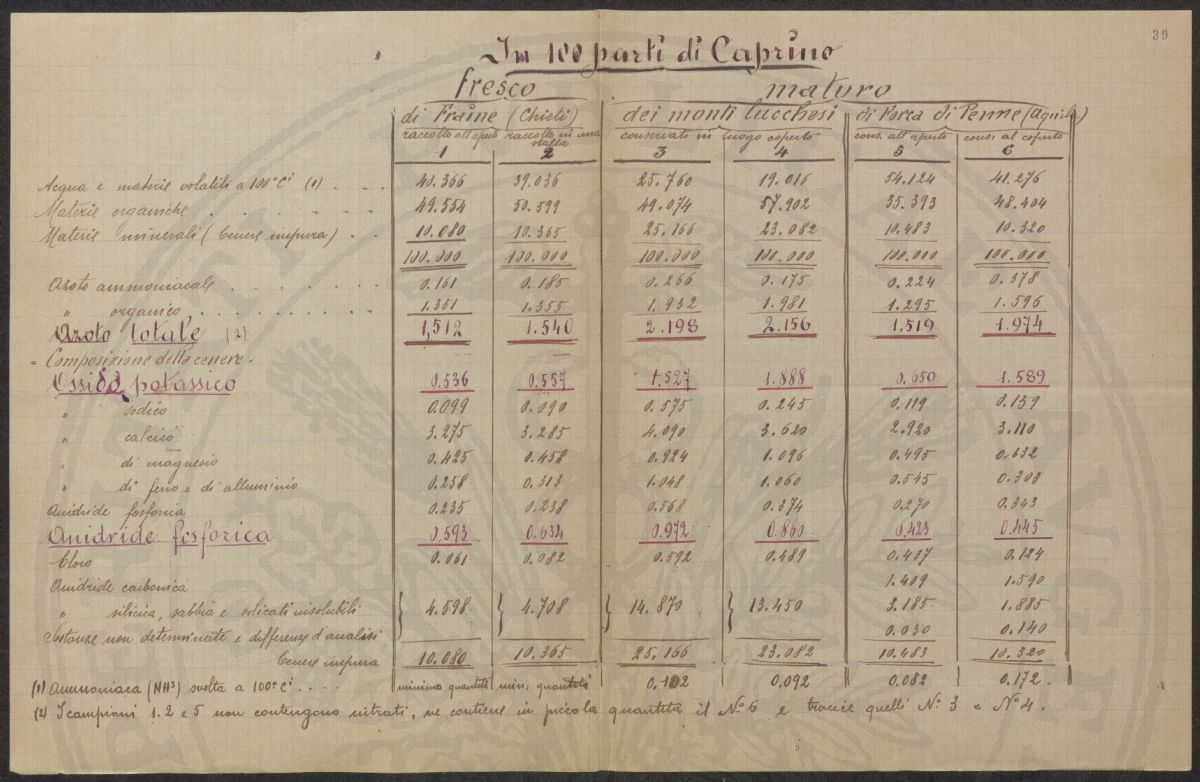 39
In 100 parti di Caprino
fresco maturo
di Fraine (Chieti) dei monti Lucchesi di Forca di Penne (Aquila)
raccolto all'aperto raccolto in una stalla conservato in luogo coperto cons. all'aperto cons. al coperto
1 2 3 4 5 6
Acqua e materie volatili a 100° Ci (1) . . . . 40.366 39.036 25.760 19.016 54.124 41.276
Materie organiche . . . . . . . . 49.554 50.599 49.074 57.902 35.393 48.404
Materie minerali (Cenere impura) . . 10.080 10.365 25.166 23.082 10.483 10.320
100.000 100.000 100.000 100.000 100.000 100.000
Azoto ammoniacale . . . . . . . . 0.161 0.185 0.266 0.175 0.224 0.378
" organico . . . . . . . . . 1.351 1.355 1.932 1.981 1.295 1.596
Azoto totale (2) 1,512 1.540 2.198 2.156 1.519 1.974
- Composizione della cenere -
Ossido potassico 0.536 0.557 1.527 1.888 0.650 1.589
" sodico 0.099 0.090 0.575 0.245 0.119 0.159
" calcico 3.275 3.285 4.090 3.620 2.920 3.110
" di magnesio 0.425 0.458 0.924 1.096 0.495 0.632
" di ferro e di alluminio 0.258 0.313 1.048 1.060 0.545 0.303
Anidride 0.235 0.238 0.568 0.374 0.270 0.343
Anidride fosforica 0.593 0.634 0.972 0.860 0.423 0.445
Cloro 0.061 0.082 0.592 0.489 0.437 0.124
Anidride carbonica 1.409 1.590
" silicica, sabbia e silicati insolubili } 4.598 } 4.708 } 14.870 } 13.450 3.185 1.885
Sostanze non determinate e differenze d'analisi 0.030 0.140
Cenere impura 10.080 10.365 25.166 23.082 10.483 10.320
(1) Ammoniaca (NH3) svolta a 100° Ci . . . . minima quantità min. quantità 0.102 0.092 0.082 0.172
(2) I campioni 1. 2 e 5 non contengono nitrati, ne contiene in piccola quantità il No 6 e traccie quelli No 3 e No 4.